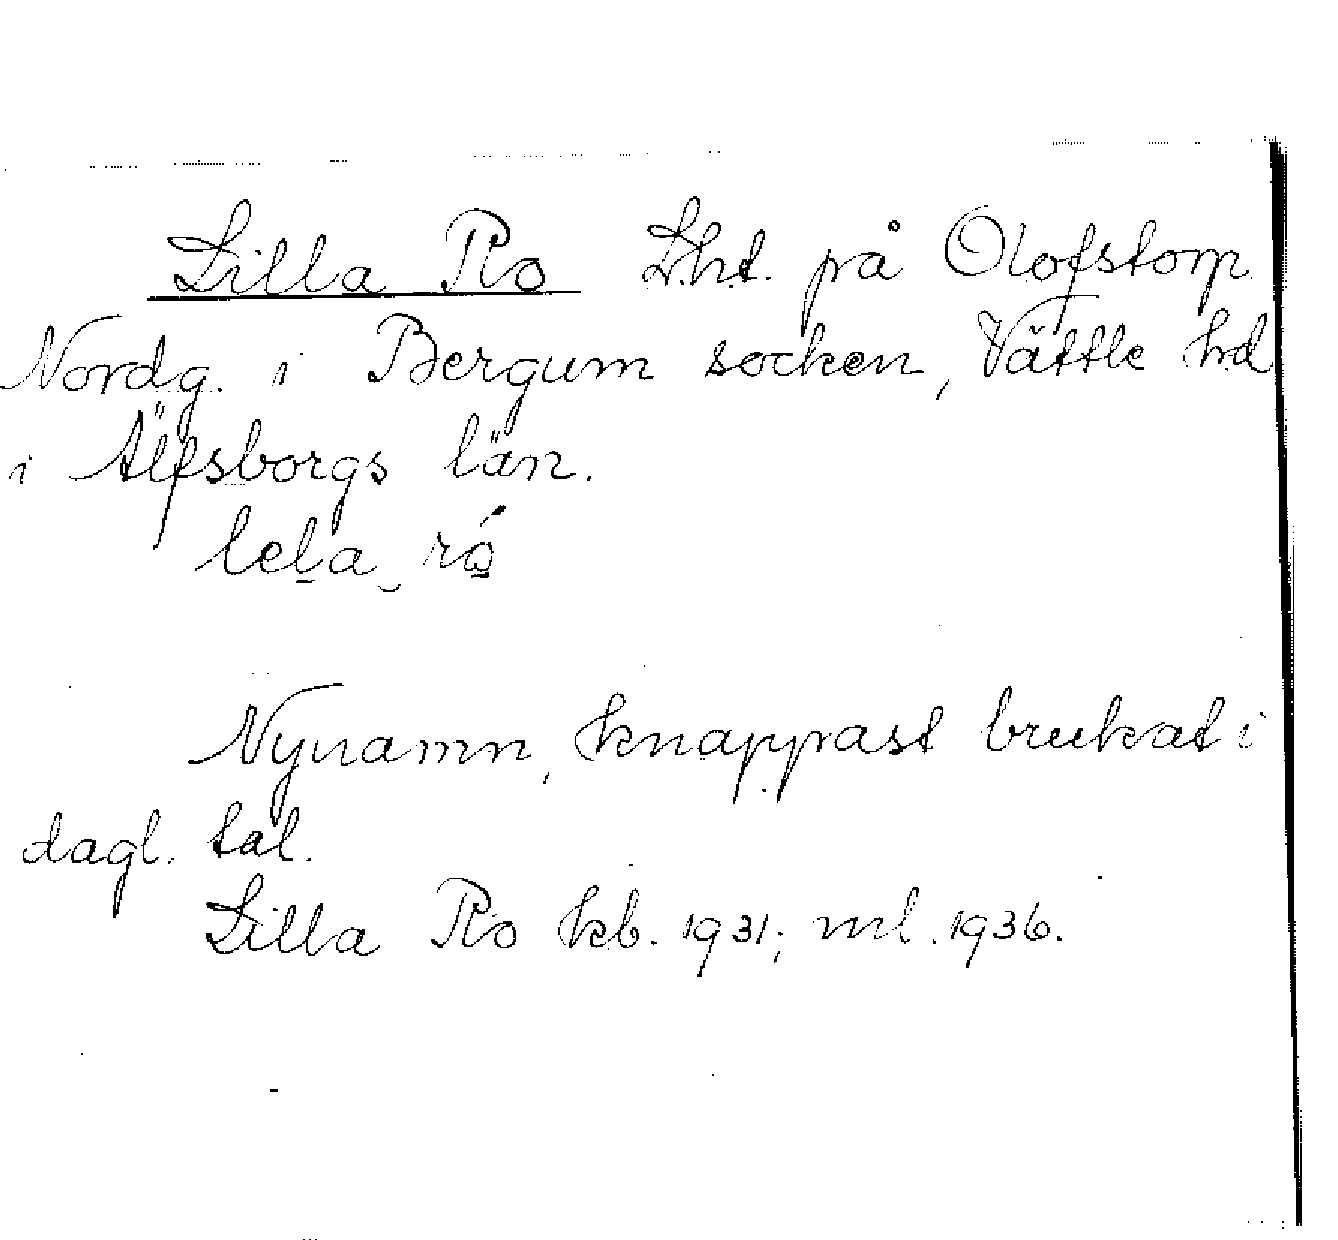 Lilla Ro L.h.t. på Olofstorp
Nordg. i Bergum socken, Vättle hd
i Älfsborgs län.
lela ró
Nynamn, knappast brukat i
dagl. tal.
Lilla Ro kb. 1931; ml. 1936.